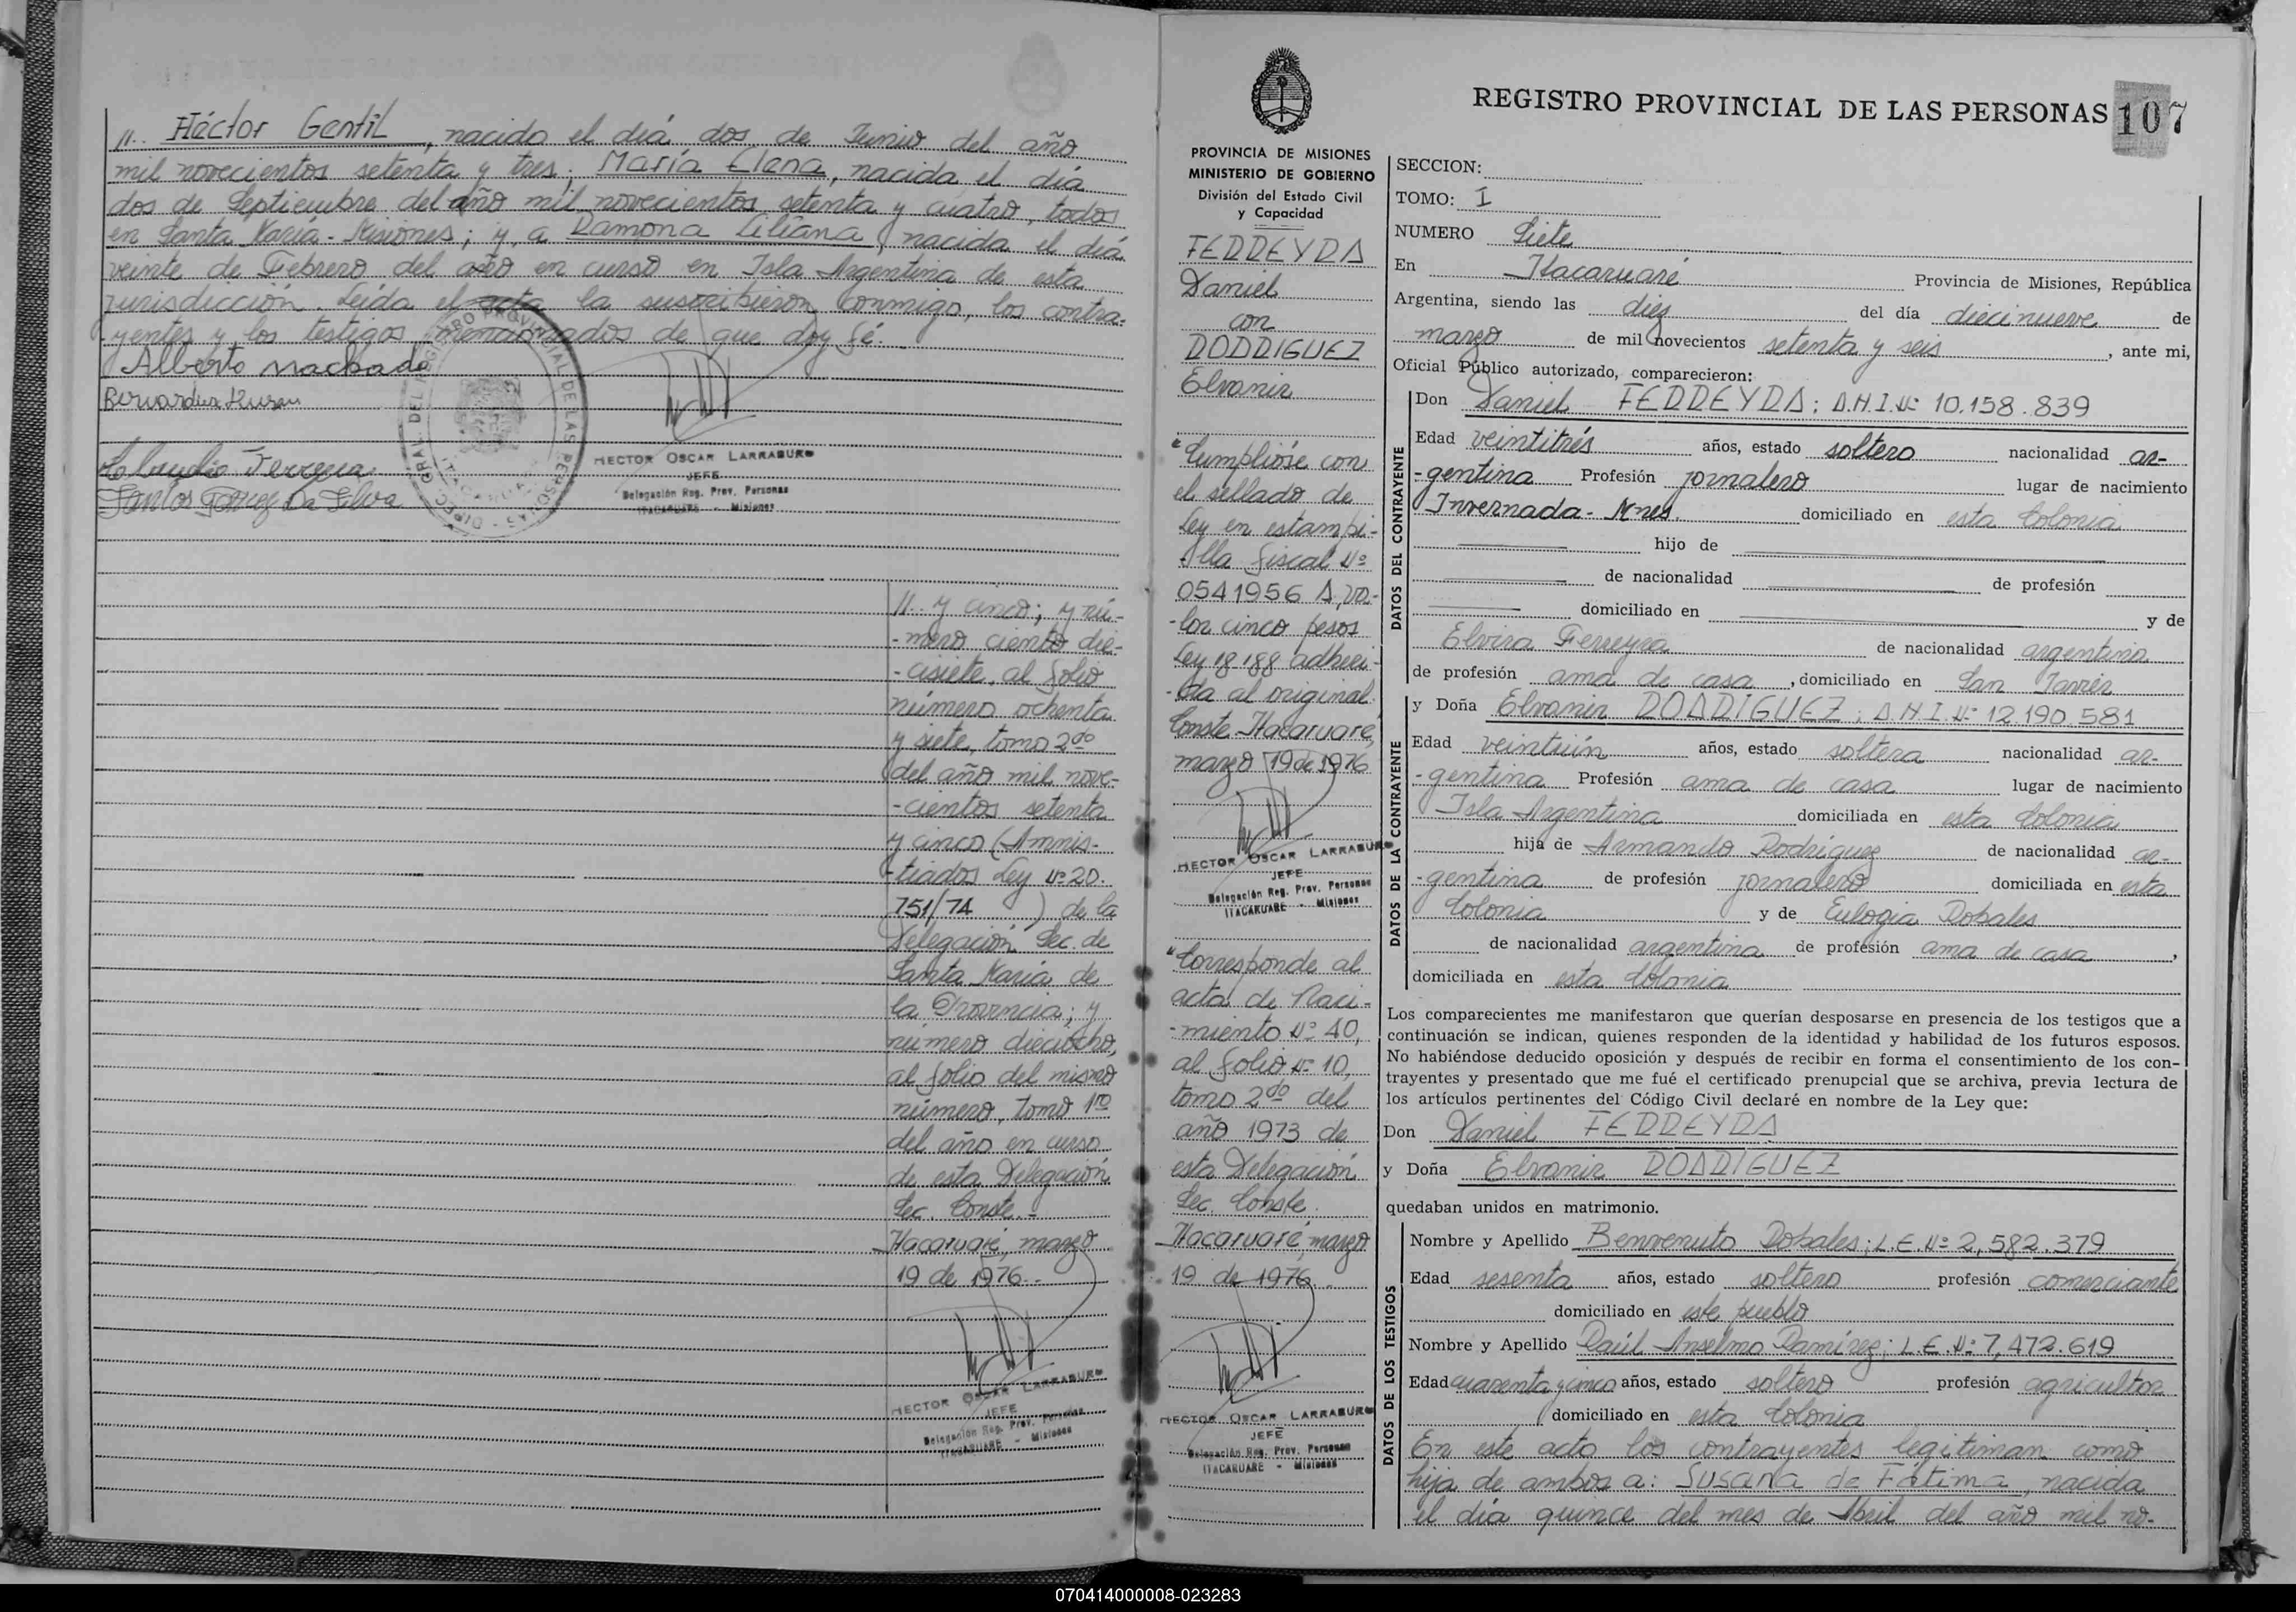 11.. Háctor Gentil, nacido el día dos de Junio del año
mil novecientos setenta y tres; María Elena, nacida el día
dos de Septiembre del año mil novecientos setenta y cuatro, todos
en Santa María - Misiones; y, a Ramona Liliana, nacida el día
veinte de Febrero del año en curso en Isla Argentina de esta
jurisdicción. Leída el acta la suscribieron conmigo, los contra-
yentes y los testigos mencionados de que doy fé.
Alberto Machado
Claudio Ferreyra
Santos Gomez Da Silva
HECTOR OSCAR LARRABURO
JEFE
Delegación Reg. Prov. Personas
ITACARUARE - Misiones
11.. y cinco; y nú-
-mero ciento die-
-cisiete, al folio
número ochenta
y siete, tomo 2do
del año mil nove-
-cientos setenta
y cinco (Amnis-
-tiados Ley Nº 20.
751/74 ) de la
Delegación Sec. de
Santa María de
la Provincia; y
número dieciocho,
al folio del mismo
número, tomo 1ro
del año en curso
de esta Delegación
Sec. Conste.-
Itacaruaré, marzo
19 de 1976.-
HECTOR OSCAR LARRABURO
JEFE
Delegación Reg. Prov. Personas
ITACARUARE - Misiones
PROVINCIA DE MISIONES
MINISTERIO DE GOBIERNO
División del Estado Civil
y Capacidad
FERREYRA
Daniel
con
RODRIGUEZ
Elvanir
"Cumplióse con
el sellado de
Ley en estampi-
-lla fiscal Nº
0541956 A, va-
-lor cinco pesos
Ley 18188 adheri-
-da al original.
Conste. Itacaruaré,
marzo 19 de 1976
HECTOR OSCAR LARRABURO
JEFE
Delegación Reg. Prov. Personas
ITACARUARE - Misiones
"Corresponde al
acta de Naci-
-miento Nº 40,
al folio Nº 10,
tomo 2do del
año 1973 de
esta Delegación
Sec. Conste.
Itacaruaré, marzo
19 de 1976.-
HECTOR OSCAR LARRABURO
JEFE
Delegación Reg. Prov. Personas
ITACARUARE - Misiones
REGISTRO PROVINCIAL DE LAS PERSONAS 107
SECCION:
TOMO: I
NUMERO Siete
En Itacaruaré Provincia de Misiones, República
Argentina, siendo las diez del día diecinueve de
marzo de mil novecientos setenta y seis, ante mi,
Oficial Público autorizado, comparecieron:
DATOS DEL CONTRAYENTE
Don Daniel FERREYRA; D.N.I. Nº 10.158.839
Edad veintitrés años, estado soltero nacionalidad ar-
-gentina Profesión jornalero lugar de nacimiento
Invernada - Mnes. domiciliado en esta Colonia
hijo de
de nacionalidad de profesión
domiciliado en y de
Elvira Ferreyra de nacionalidad argentina
de profesión ama de casa, domiciliado en San Javier
DATOS DE LA CONTRAYENTE
y Doña Elvanir RODRIGUEZ; D.N.I. Nº 12.190.581
Edad veintiún años, estado soltera nacionalidad ar-
-gentina Profesión ama de casa lugar de nacimiento
Isla Argentina domiciliada en esta Colonia
hija de Armando Rodriguez de nacionalidad ar-
-gentina de profesión jornalero domiciliada en esta
Colonia y de Eulogia Robales
de nacionalidad argentina de profesión ama de casa,
domiciliada en esta Colonia
Los comparecientes me manifestaron que querían desposarse en presencia de los testigos que a
continuación se indican, quienes responden de la identidad y habilidad de los futuros esposos.
No habiéndose deducido oposición y después de recibir en forma el consentimiento de los con-
trayentes y presentado que me fué el certificado prenupcial que se archiva, previa lectura de
los artículos pertinentes del Código Civil declaré en nombre de la Ley que:
Don Daniel FERREYRA
y Doña Elvanir RODRIGUEZ
quedaban unidos en matrimonio.
DATOS DE LOS TESTIGOS
Nombre y Apellido Benvenuto Robales; L.E. Nº 2,582.379
Edad sesenta años, estado soltero profesión comerciante
domiciliado en este pueblo
Nombre y Apellido Raúl Anselmo Ramírez; L.E. Nº 7,472.619
Edad cuarenta y cinco años, estado soltero profesión agricultor
domiciliado en esta Colonia
En este acto los contrayentes legitiman como
hija de ambos a: Susana de Fátima, nacida
el día quince del mes de Abril del año mil no-
070414000008-023283